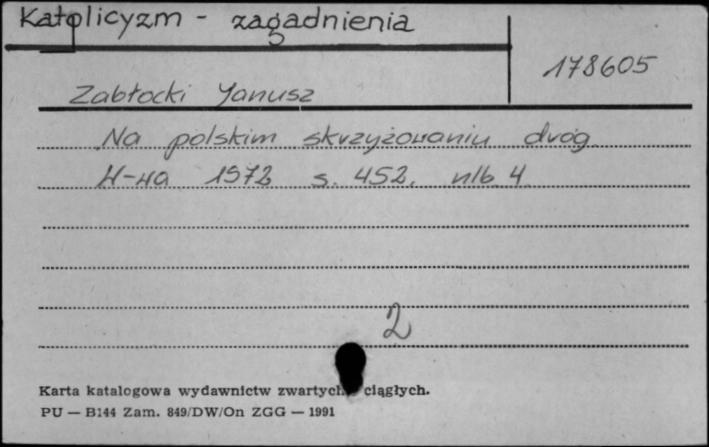 Katolicyzm - zagadnienia
178605
Zabłocki Janusz
Na polskim skrzyżowaniu dróg
W-wa 1972 s. 452, nlb. 4
2
Karta katalogowa wydawnictw zwartych ciągłych.
PU — B144 Zam. 849/DW/On ZGG — 1991